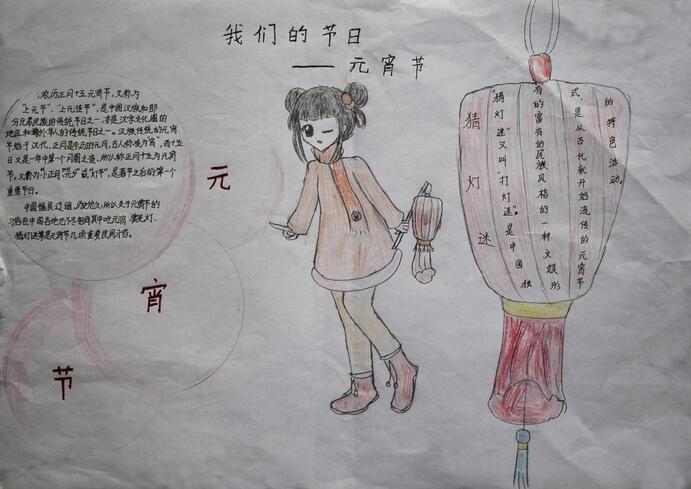 我们的节日
——元宵节
农历正月十五元宵节，又称为
"上元节"、"上元佳节"，是中国汉族和部
分兄弟民族的传统节日之一，亦是汉字文化圈的
地区和海外华人的传统节日之一。汉族传统的元宵
节始于汉代，正月是农历的元月，古人称夜为"宵"，而十五
日又是一年中第一个月圆之夜，所以称正月十五为元宵
节。又称为"小正月""元夕"或"灯节"，是春节之后的第一个
重要节日。
中国幅员辽阔，历史悠久，所以关于元宵节的
习俗在中国各地也不尽相同，其中吃元宵、赏花灯、
猜灯谜等是元宵节几项重要民间习俗。
元
宵
节
猜灯谜
"猜灯谜"又叫"打灯谜"。是中国独
有的富有的民族风格的一种文娱形
式，是从古代就开始流传的元宵节
的特色活动。